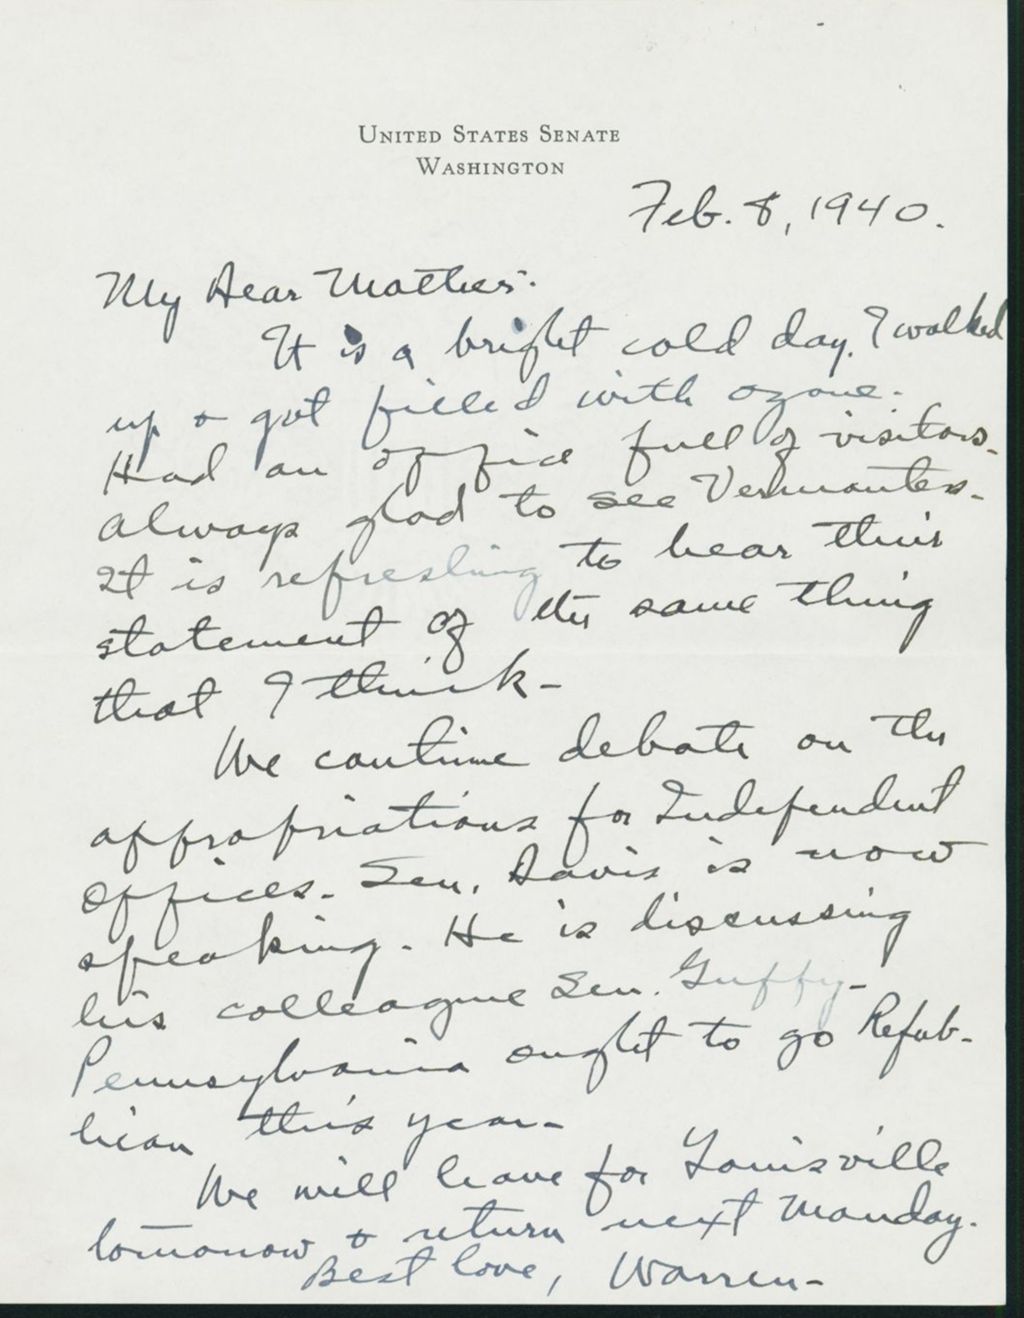 UNITED STATES SENATE
WASHINGTON
Feb. 8, 1940.
My Dear Mother:
It is a bright cold day. I walked
up & got filled with ozone.
Had an office full of visitors.
Always glad to see Vermonters.
It is refreshing to hear their
statement of the same thing
that I think-
We continue debate on the
appropriations for Independent
Offices. Sen. Davis is now
speaking. He is discussing
his colleague Sen. Guffy-
Pennsylvania ought to go Repub-
lican this year-
We will leave for Louisville
tomorrow & return next Monday.
Best love, Warren-